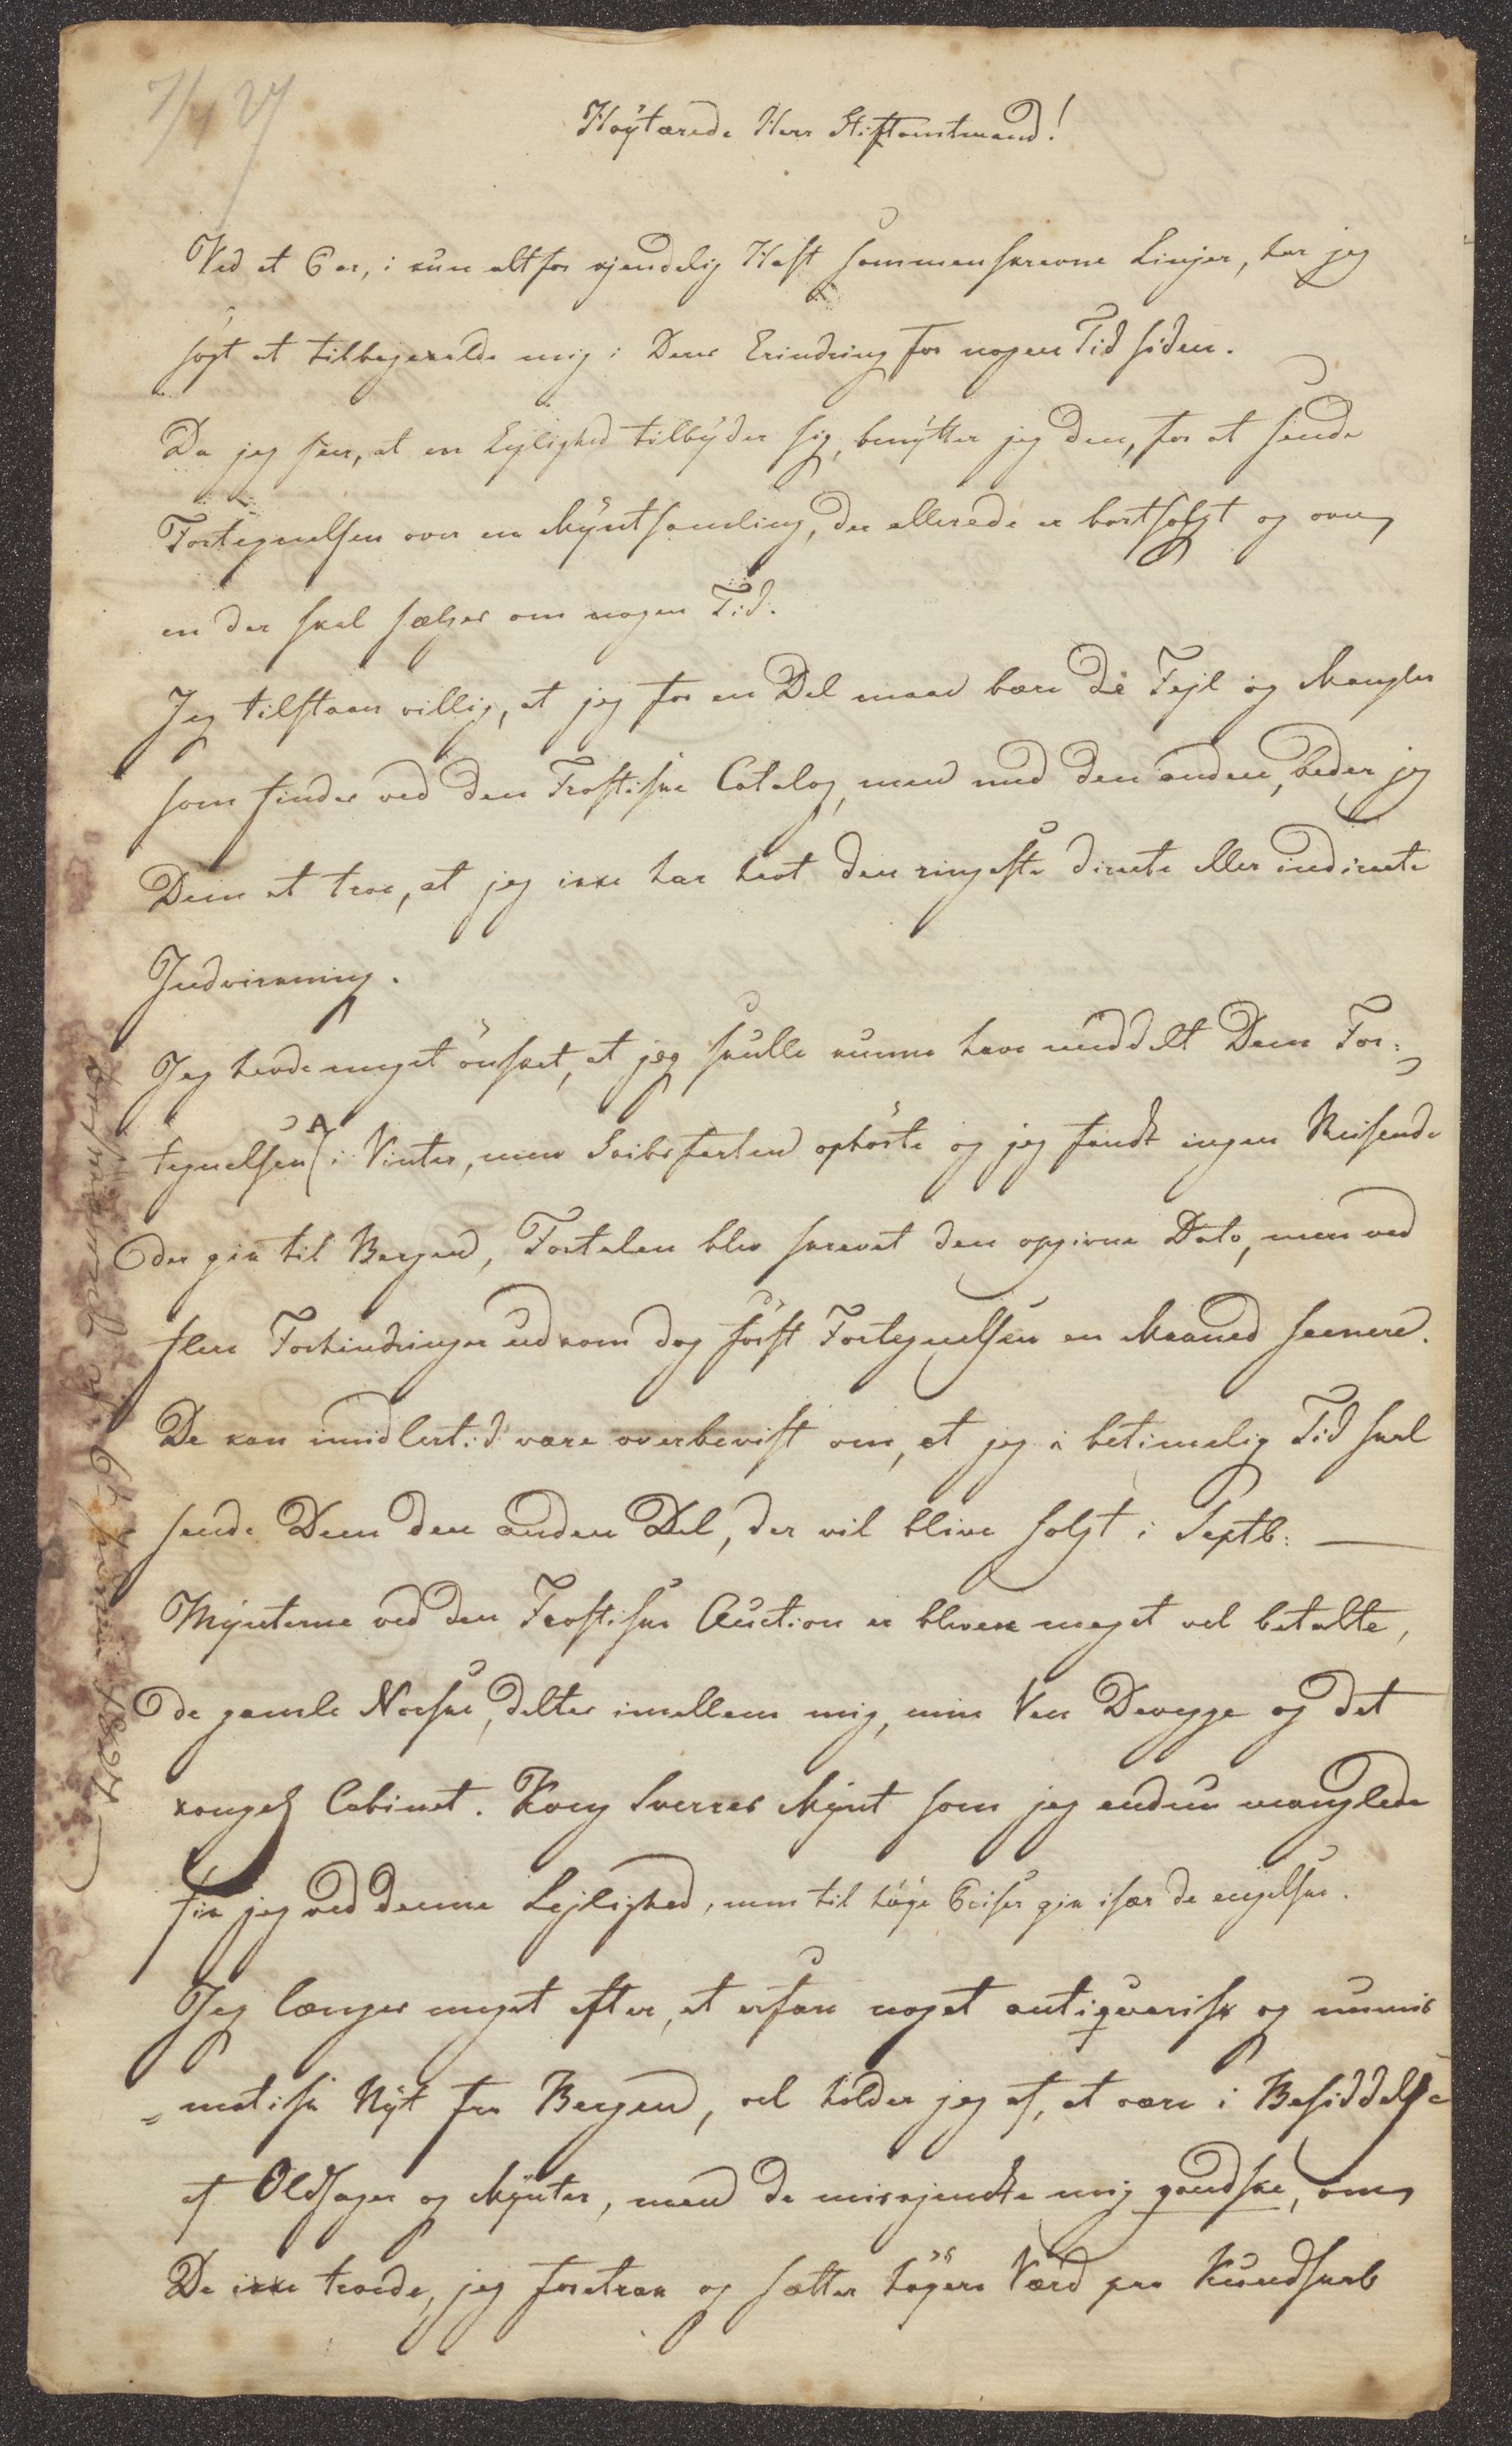 7/4 27
Höÿtærede Herr Stiftamtmand!
Ved et Par, i kun altfor kjendelig Hast sammenskrevne Linjer, har jeg
sögt at tilbagekalde mig i Deres Erindring for nogen Tid siden.
Da jeg seer, at en Lejlighed tilbÿder sig, benÿtter jeg den, for at sende
Fortegnelsen over en Mÿntsamling, der allerede er bortsolgt og over
en der skal sælges om nogen Tid.
Jeg tilstaaer villig, at jeg for en Del maae bære de Fejl og Mangler
som findes ved den Frostiske Catalog, men med den anden, beder jeg
Dem at troe, at jeg ikke har havt den ringeste directe eller indirecte
Indvirkning.
Jeg havde meget önsket, at jeg skulle kunne have meddelt Dem For-
tegnelsen A i Vinter, men Skibsfarten ophörte og jeg fandt ingen Reisende
der gik til Bergen, Fortalen blev skrevet den opgivne Dato, men ved
flere Forhindringer udkom dog först Fortegnelsen en Maaned seenere.
De kan imidlertid være overbevist om, at jeg i betimelig Tid skal
sende Dem den anden Del, der vil blive solgt i Septb: —
Mÿnterne ved den Frostiske Auction er blevne meget vel betalte,
de gamle Norske, deltes imellem mig, min Ven Devegge og det
kongel Cabinet. Kong Sverres Mÿnt som jeg endnu manglede
fik jeg ved denne Lejlighed, men til höje Priser gik især de engelske.
Jeg længes meget efter, at erfare noget antiqvarisk og numis
= matisk Nÿt fra Bergen, vel holder jeg af, at være i Besiddelse
af Oldsager og Mÿnter, men De miskjendte mig gandske, om
De ikke troede, jeg foretrak og sætter höjere Værd paa Kundskab